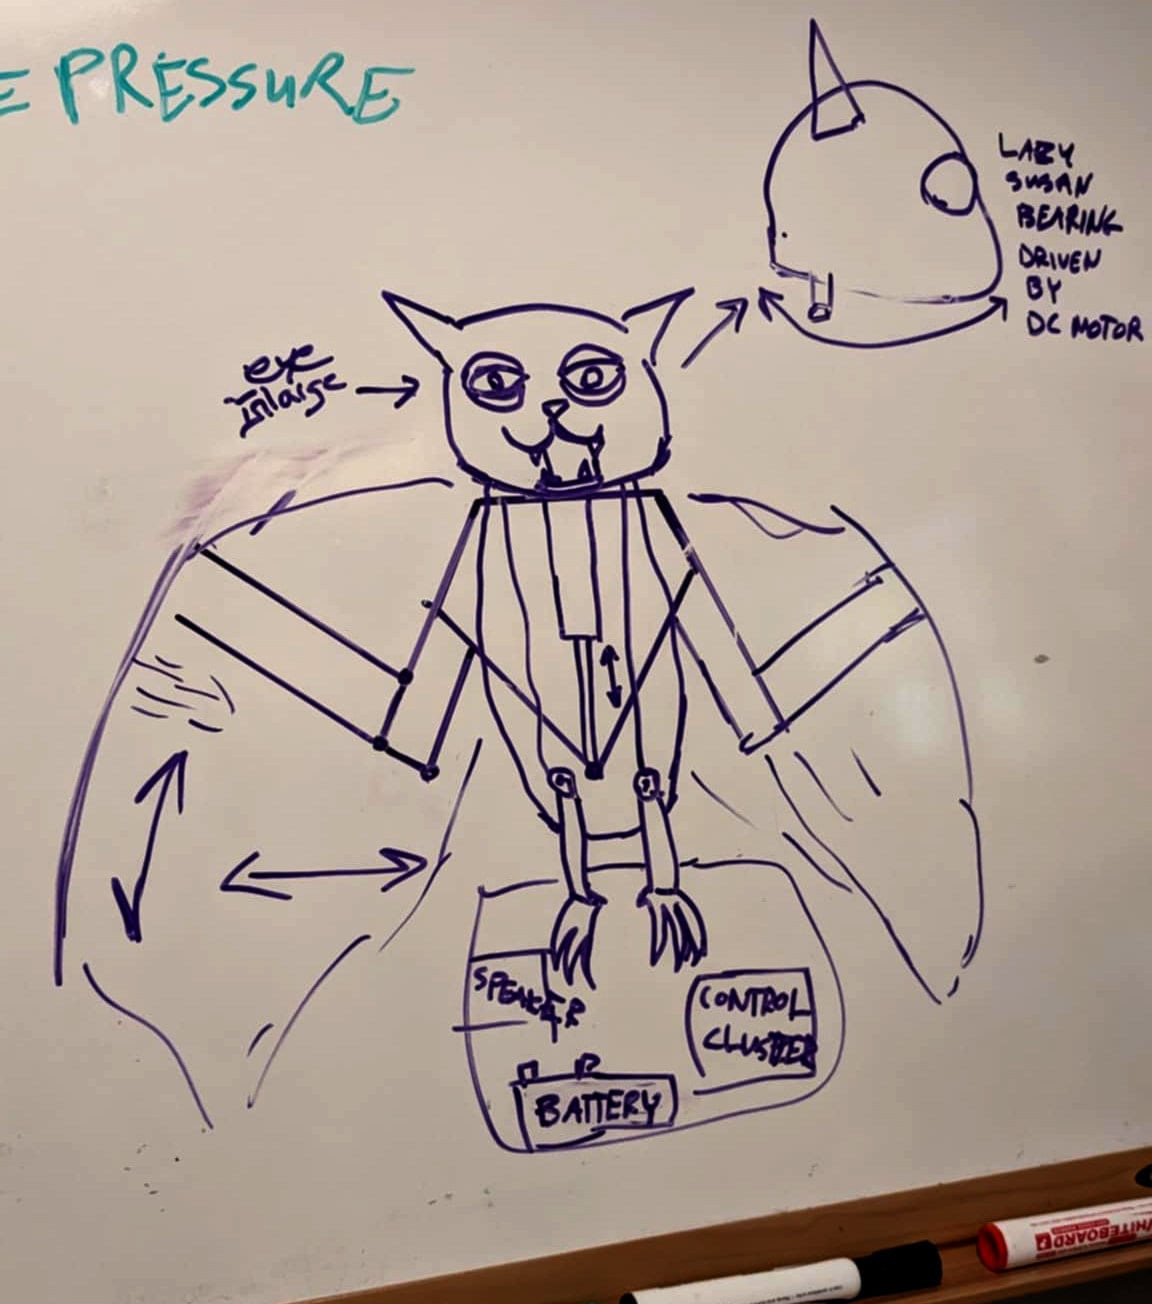 E PRESSURE
LAZY
SUSAN
BEARING
DRIVEN
BY
DC MOTOR
eye
Inlarge
SPEAKER
CONTROL
CLUSTER
BATTERY
WHITEBOARD